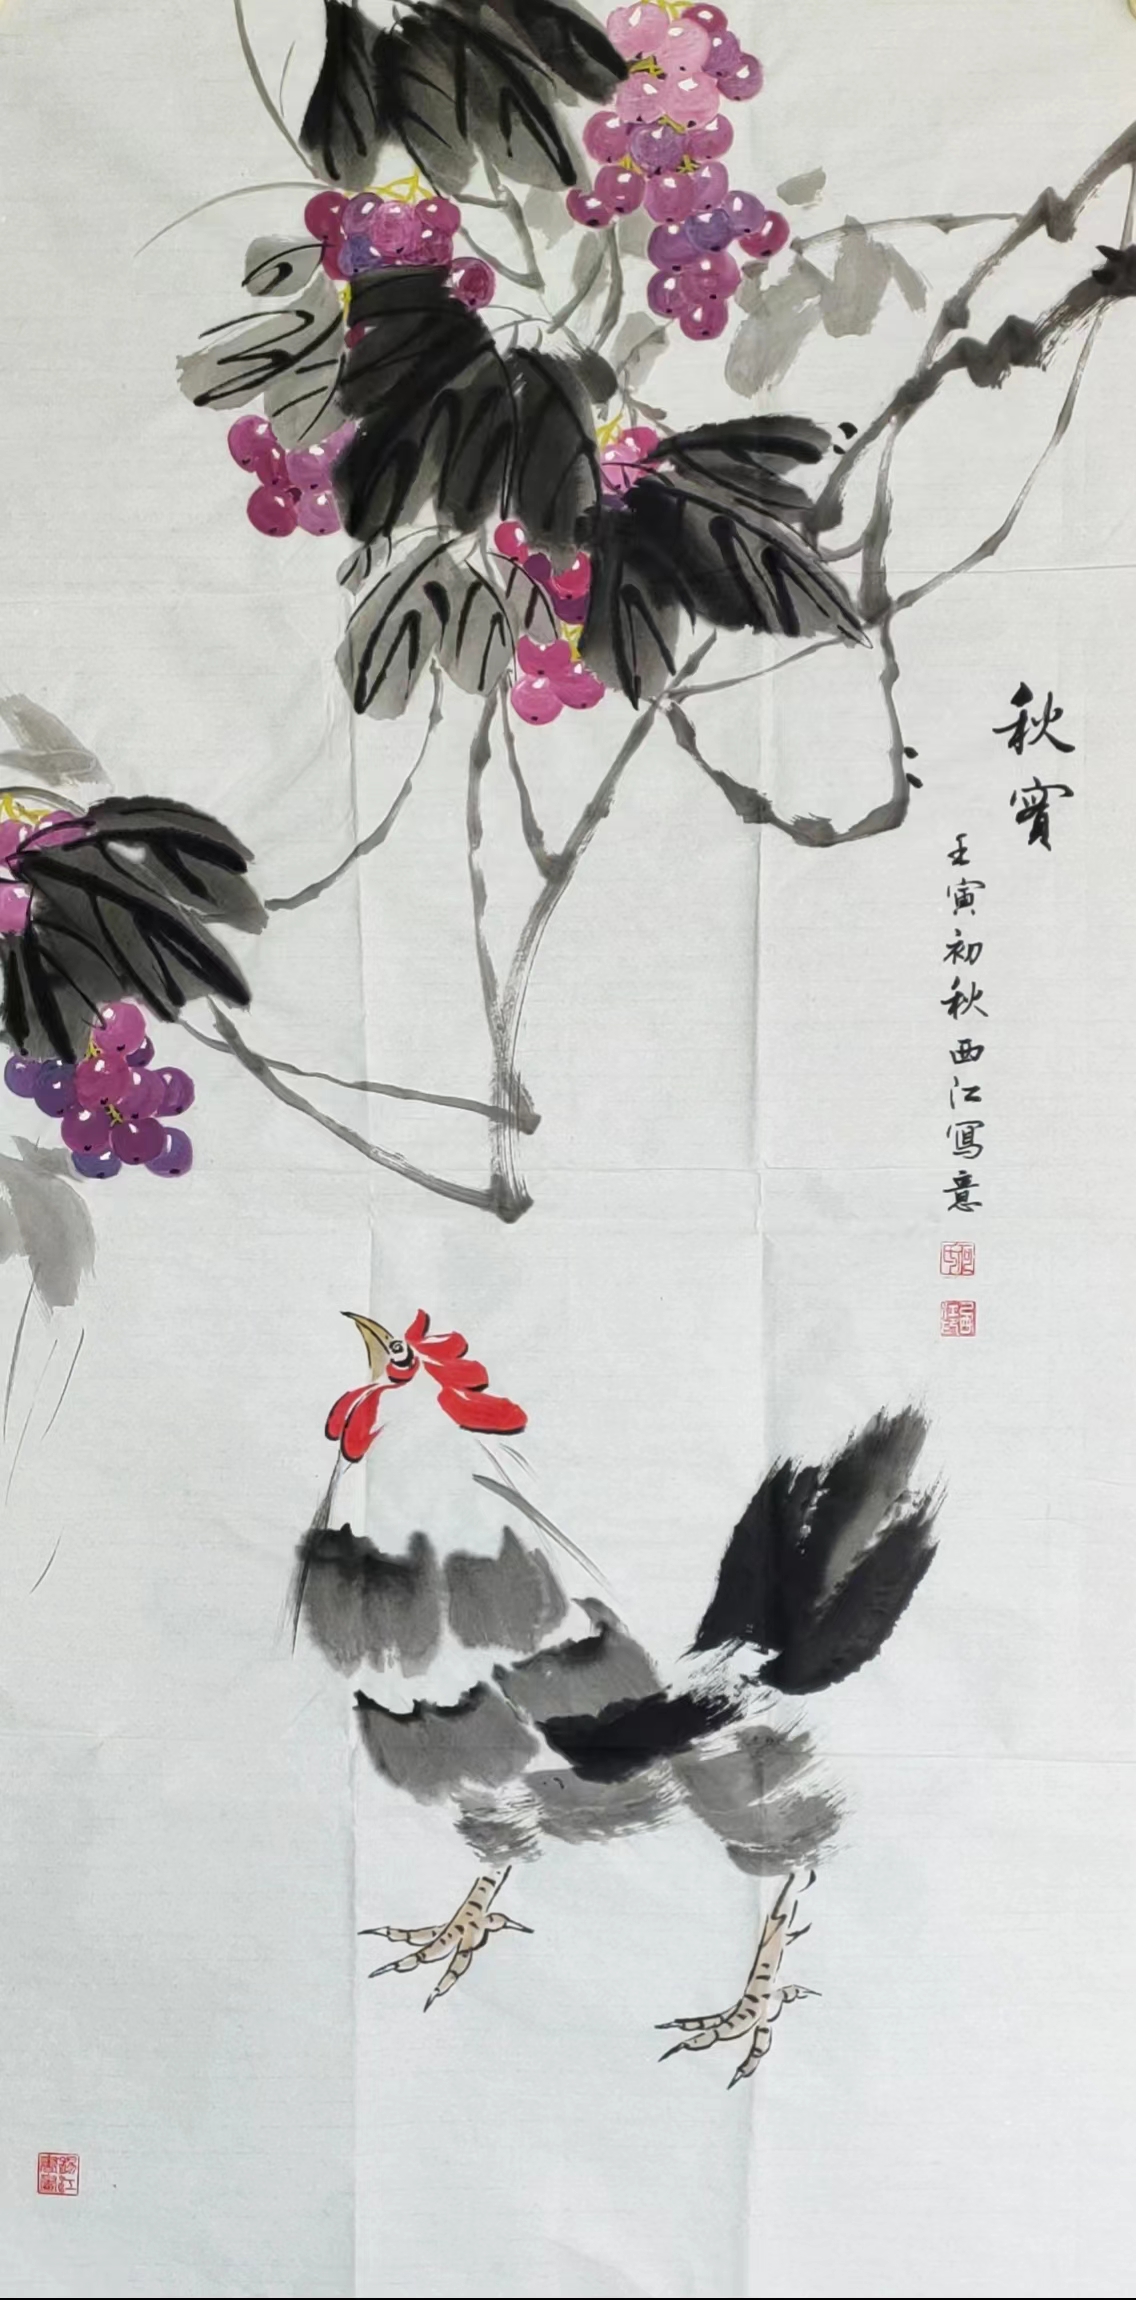 秋實
壬寅初秋西江寫意